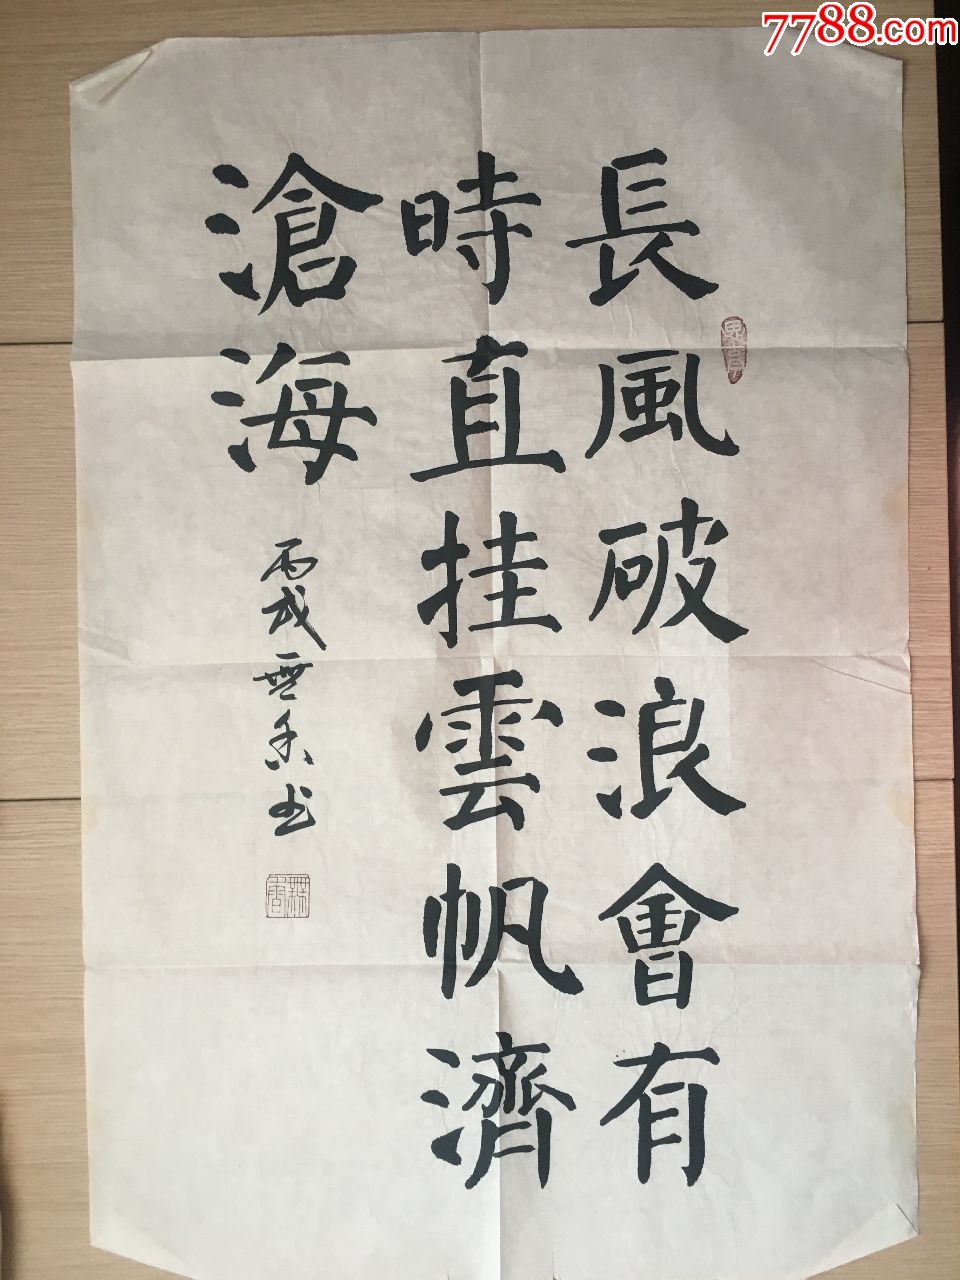 7788.com
長風破浪會有
時直挂雲帆濟
滄海
丙戌無香书